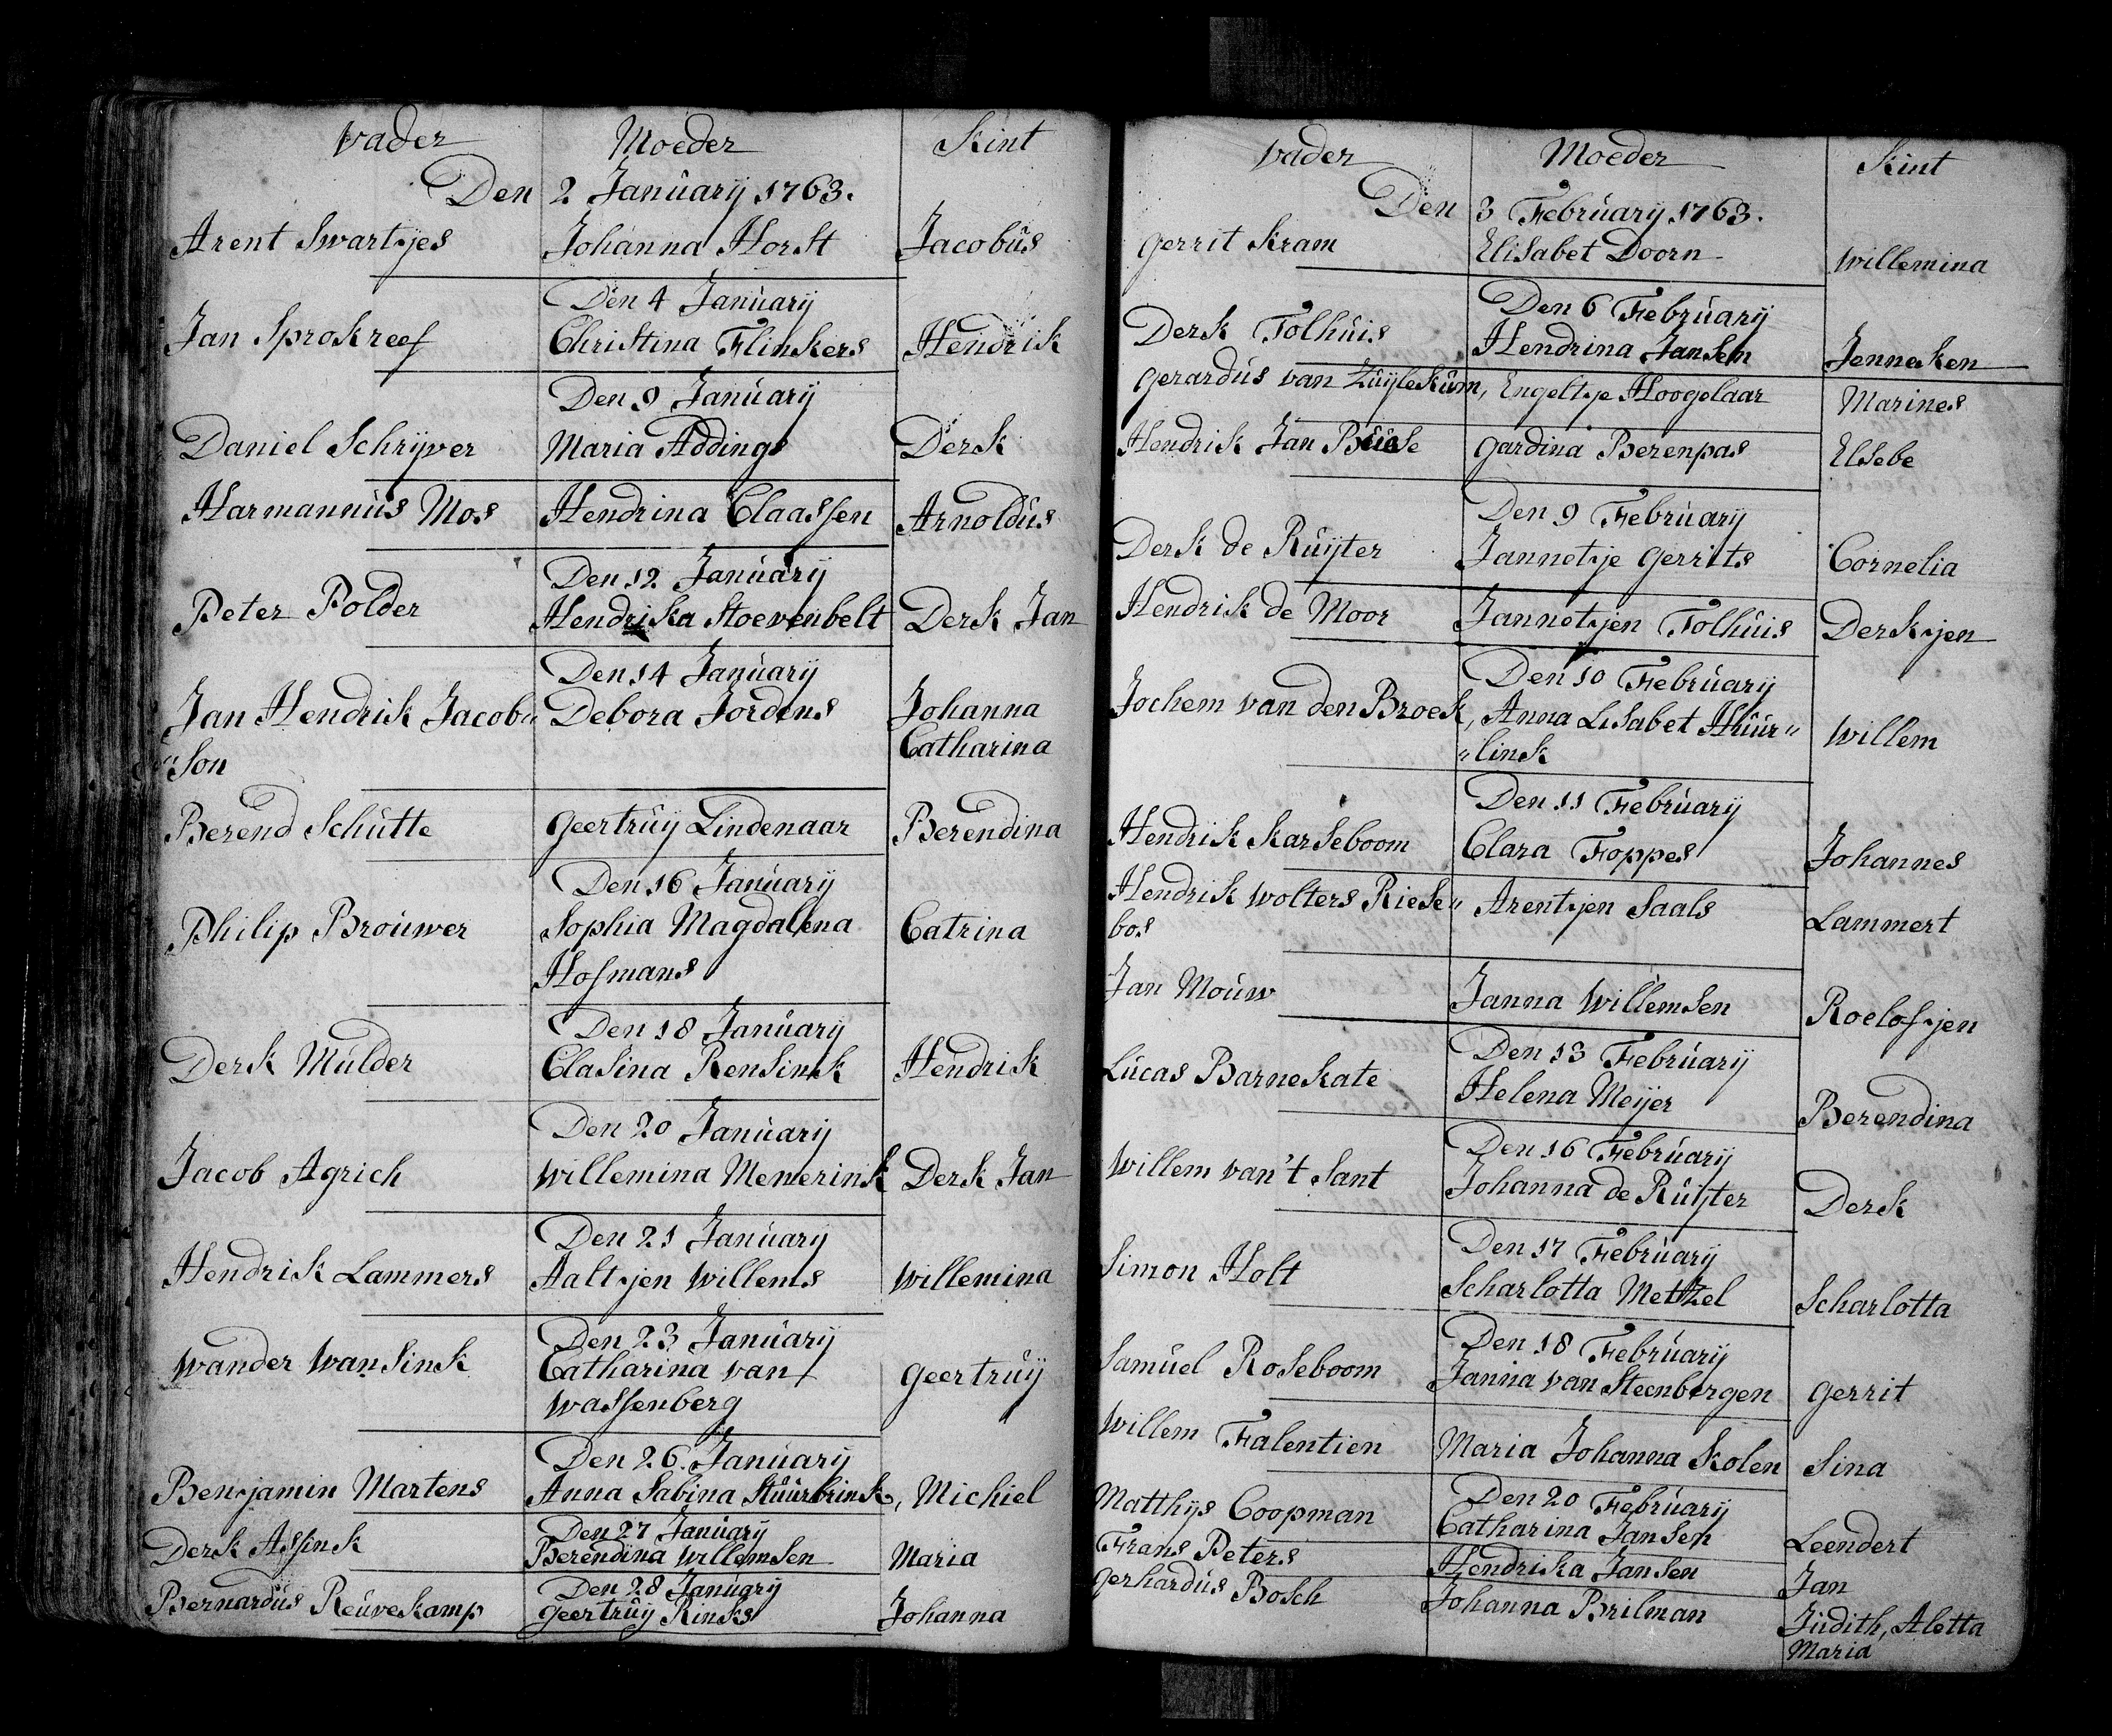 vader Moeder Kint
Den 2 Januarij 1763.
Arent Swartjes Johanna Horst Jacobus
Den 4 Januarij
Jan Sprokreef Christina Flinkers Hendrik
Den 9 Januarij
Daniel Schrijver Maria Addings Derk
Harmannus Mos Hendrina Claassen Arnoldus
Den 12 Januarij
Peter Polder Hendrika Stoevenbelt Derk Jan
Den 14 Januarij
Jan Hendrik Jacob„ Debora Jordens Johanna
„Son Catharina
Berend Schutte Geertruij Lindenaar Berendina
Den 16 Januarij
Philip Brouwer Sophia Magdalena Catrina
Hofmans
Den 18 Januarij
Derk Mulder Clasina Rensink Hendrik
Den 20 Januarij
Jacob Agrich Willemina Menerink Derk Jan
Den 21 Januarij
Hendrik Lammers Aaltjen Willems Willemina
Den 23 Januarij
Wander Wansink Catharina van Geertruij
Wassenberg
Den 26 Januarij
Benjamin Martens Anna Sabina Stuurbrink, Michiel
Den 27 Januarij
Derk Assink Berendina Willemsen Maria
Den 28 Januarij
Bernardus Reuvekamp Geertruij Rinks Johanna
vader Moeder Kint
Den 3 February 1763.
Gerrit Kram Elisabet Doorn Willemina
Den 6 February
Derk Tolhuis Hendrina Jansen Jenneken
Gerardus van Zuylekum, Engeltje Hoogelaar Marines
Hendrik Jan Buse Gardina Berenpas Elsebe
Den 9 February
Derk de Ruijter Jannetje Gerrits Cornelia
Hendrik de Moor Jannetjen Tolhuis Derkjen
Den 10 February
Jochem van den Broek, Anna Lisabet Huur„ Willem
„link
Den 11 February
Hendrik Karseboom Clara Foppes Johannes
Hendrik Wolters Riese„ Arentjen Saals Lammert
bos
Jan Mouw Janna Willemsen Roelofjen
Den 13 Februarij
Lucas Barnekate Helena Meijer Berendina
Den 16 February
Willem van't Sant Johanna de Ruijter Derk
Den 17 Februarij
Simon Holt Scharlotta Metzel Scharlotta
Den 18 February
Samuel Roseboom Janna van Steenbergen Gerrit
Willem Falentien Maria Johanna Kolen Sina
Den 20 February
Matthijs Coopman Catharina Jansen Leendert
Frans Peters Hendrika Jansen Jan
Gerhardus Bosch Johanna Brilman Judith, Aletta
Maria